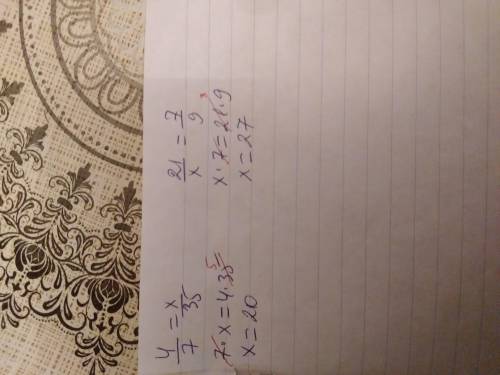 4/7 = x/35
7·x=4·35 5
x=20
21/x = 7/9
x·7=21·9 3
x=27